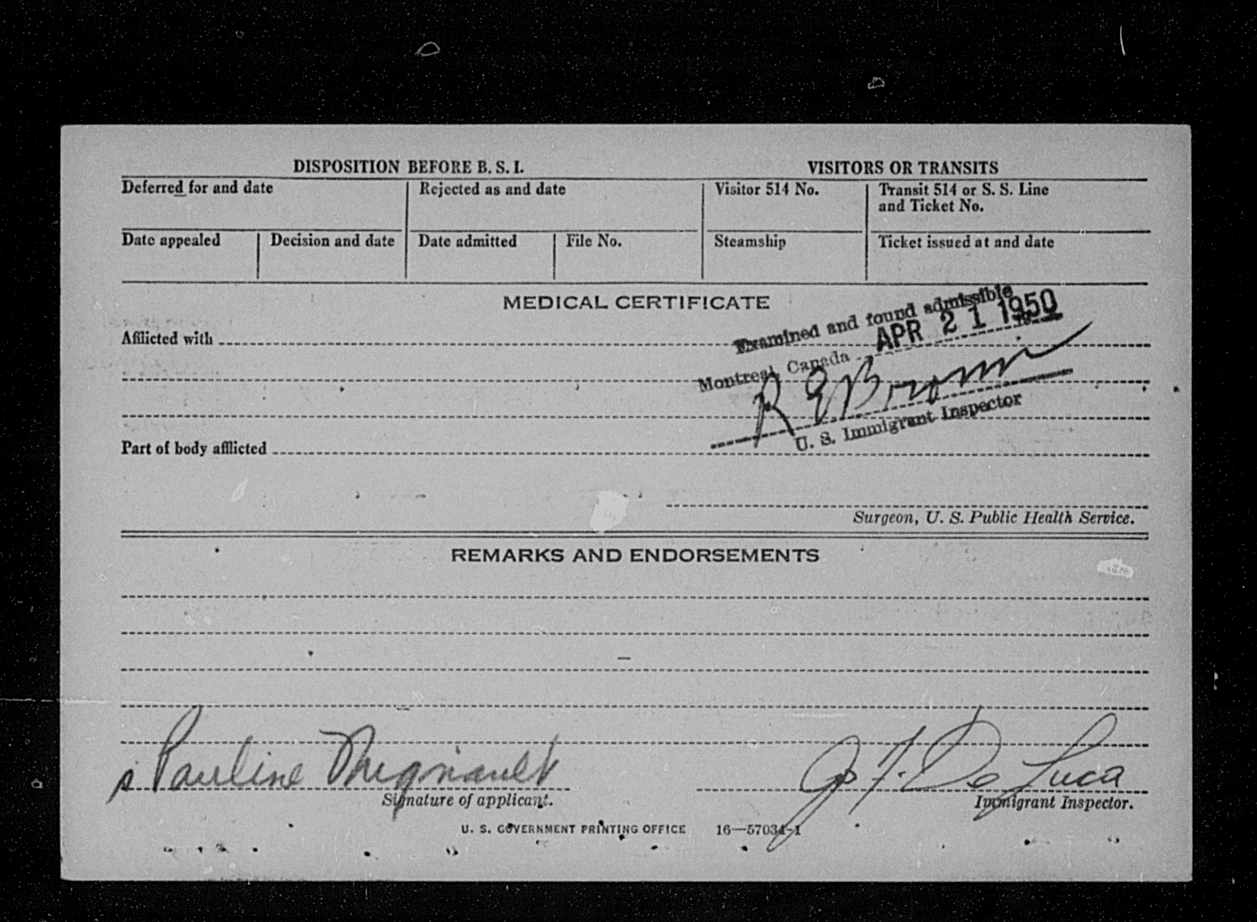 DISPOSITION BEFORE B. S. I.
VISITORS OR TRANSITS
Deferred for and date
Rejected as and date
Visitor 514 No.
Transit 514 or S. S. Line
and Ticket No.
Date appealed
Decision and date
Date admitted
File No.
Steamship
Ticket issued at and date
MEDICAL CERTIFICATE
Examined and found admissible
Montreal Canada APR 21 1950
R E
U. S. Immigrant Inspector
Afflicted with
Part of body afflicted
Surgeon, U. S. Public Health Service.
REMARKS AND ENDORSEMENTS
s Pauline Mignault
Signature of applicant.
J. F. De Luca
Immigrant Inspector.
U. S. GOVERNMENT PRINTING OFFICE 16—57034-1